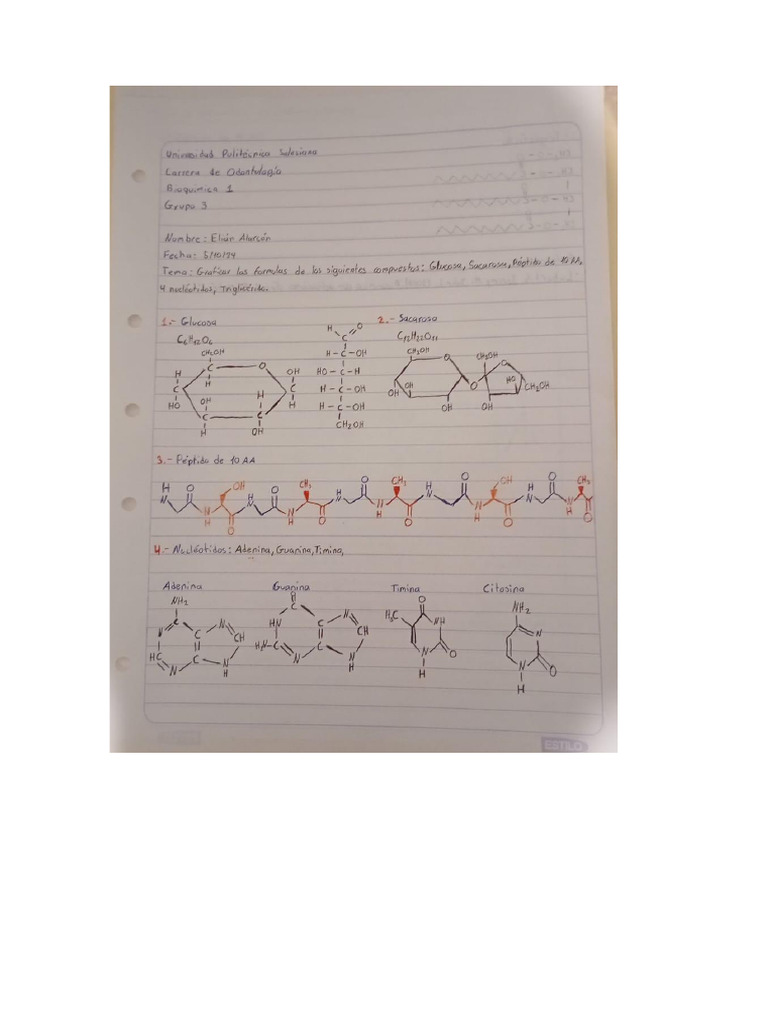 Universidad Politécnica Salesiana
Carrera de Odontología
Bioquímica 1
Grupo 3
Nombre: Elián Alarcón
Fecha: 5/10/24
Tema: Graficar las formulas de los siguientes compuestos: Glucosa, Sacarosa, Péptido de 10 AA,
4 nucleótidos, Triglicérido.
1.- Glucosa
C6H12O6
CH2OH
C
O
H
H
C
HO
OH
C
H
H
C
OH
OH
C
H
H
O
C
H-C-OH
HO-C-H
H-C-OH
H-C-OH
CH2OH
2.- Sacarosa
C12H22O11
CH2OH
O
OH
OH
OH
O
CH2OH
O
HO
CH2OH
OH
3.- Péptido de 10 AA
H
N
O
OH
H
N
O
H
N
O
CH3
H
N
O
H
N
O
CH3
H
N
O
H
N
O
OH
H
N
O
H
N
O
CH3
H
N
O
4.- Nucleótidos: Adenina, Guanina, Timina,
Adenina
NH2
N
C
C
N
CH
HC
N
C
N
H
Guanina
C
HN
C
N
CH
H2N-C
N
C
N
H
Timina
O
H3C
NH
N
O
H
Citosina
NH2
N
N
O
H
ESTILO